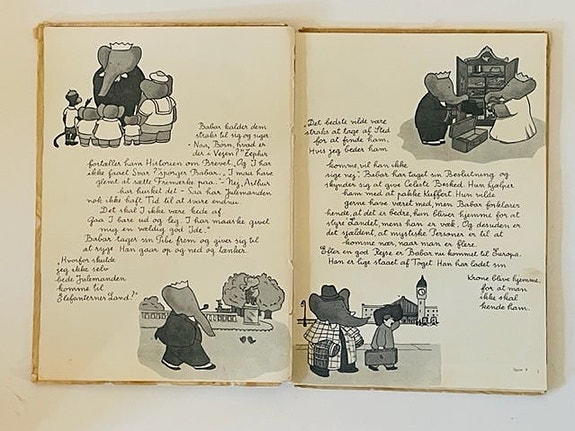 Babar kalder dem
straks til sig og siger:
- Naa, Børn, hvad er
der i Vejen?" Zephir
fortæller ham Historien om Brevet. "Og I har
ikke faaet Svar?" spørger Babar. "I maa have
glemt at sætte Frimærke paa." - "Nej, Arthur
har husket det." - "Saa har Julemanden
nok ikke haft Tid til at svare endnu.
Det skal I ikke være kede af.
Gaa I bare ud og leg. I har maaske givet
mig en vældig god Idé."
Babar tager sin Pibe frem og giver sig til
at ryge. Han gaar op og ned og tænker.
"Hvorfor skulde
jeg ikke selv
bede Julemanden
komme til
Elefanternes Land?"
"Det bedste vilde være
straks at tage af Sted
for at finde ham.
Hvis jeg beder ham
komme, vil han ikke
sige nej." Babar har taget sin Beslutning og
skynder sig at give Celeste Besked. Hun hjælper
ham med at pakke Kuffert. Hun vilde
gerne have været med, men Babar forklarer
hende, at det er bedre, hun bliver hjemme for at
styre Landet, mens han er væk. Og desuden er
det sjældent, at mystiske Personer er til at
komme nær, naar man er flere.
Efter en god Rejse er Babar nu kommet til Europa.
Han er lige staaet af Toget. Han har ladet sin
Krone blive hjemme,
for at man
ikke skal
kende ham.